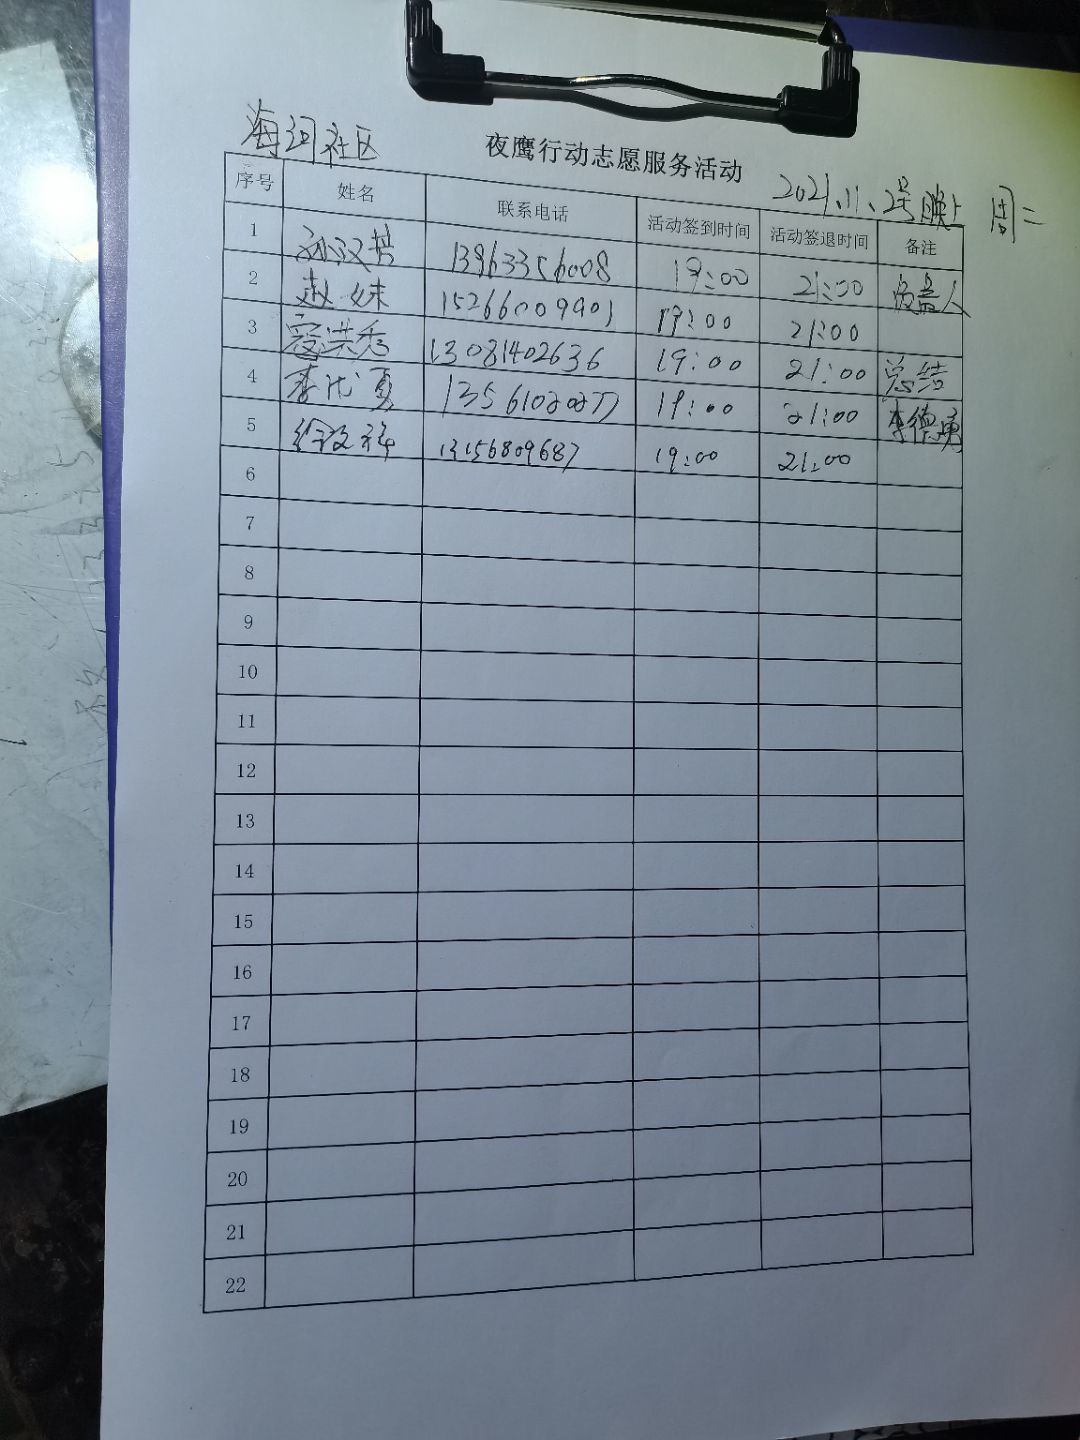 海河社区
夜鹰行动志愿服务活动
2021.11.2号晚上 周二
序号 姓名 联系电话 活动签到时间 活动签退时间 备注
1 孙汉英 13963356008 19:00 21:00 负责人
2 赵妹 15266009901 19:00 21:00
3 寇洪秀 13081402636 19:00 21:00 总结
4 19:00 21:00 李德勇
5 13156809687 19:00 21:00
6
7
8
9
10
11
12
13
14
15
16
17
18
19
20
21
22